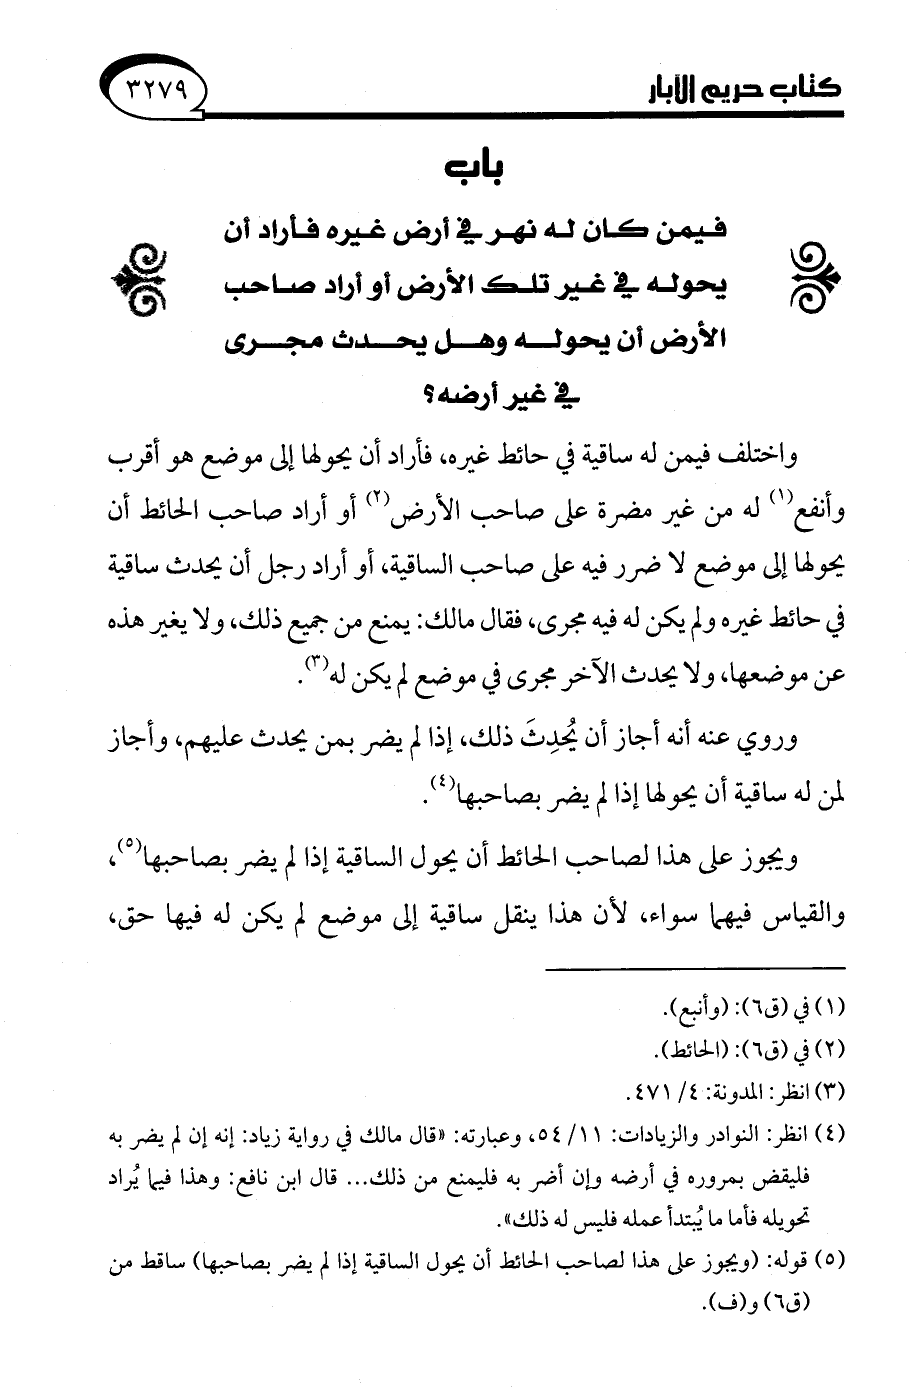 كتاب حريم الآبار
٣٢٧٩
باب
فيمن كان له نهر في أرض غيره فأراد أن
يحوله في غير تلك الأرض أو أراد صاحب
الأرض أن يحوله وهل يحدث مجرى
في غير أرضه؟
واختلف فيمن له ساقية في حائط غيره، فأراد أن يحولها إلى موضع هو أقرب
وأنفع(١) له من غير مضرة على صاحب الأرض(٢) أو أراد صاحب الحائط أن
يحولها إلى موضع لا ضرر فيه على صاحب الساقية، أو أراد رجل أن يحدث ساقية
في حائط غيره ولم يكن له فيه مجرى، فقال مالك: يمنع من جميع ذلك، ولا يغير هذه
عن موضعها، ولا يحدث الآخر مجرى في موضع لم يكن له(٣).
وروي عنه أنه أجاز أن يُحدِثَ ذلك، إذا لم يضر بمن يحدث عليهم، وأجاز
لمن له ساقية أن يحولها إذا لم يضر بصاحبها(٤).
ويجوز على هذا لصاحب الحائط أن يحول الساقية إذا لم يضر بصاحبها(٥)،
والقياس فيهما سواء، لأن هذا ينقل ساقية إلى موضع لم يكن له فيها حق،
(١) في (ق٦): (وأنبع).
(٢) في (ق٦): (الحائط).
(٣) انظر: المدونة: ٤/ ٤٧١.
(٤) انظر: النوادر والزيادات: ١١/ ٥٤، وعبارته: «قال مالك في رواية زياد: إنه إن لم يضر به
فليقض بمروره في أرضه وإن أضر به فليمنع من ذلك... قال ابن نافع: وهذا فيما يُراد
تحويله فأما ما يُبتدأ عمله فليس له ذلك».
(٥) قوله: (ويجوز على هذا لصاحب الحائط أن يحول الساقية إذا لم يضر بصاحبها) ساقط من
(ق٦) و(ف).